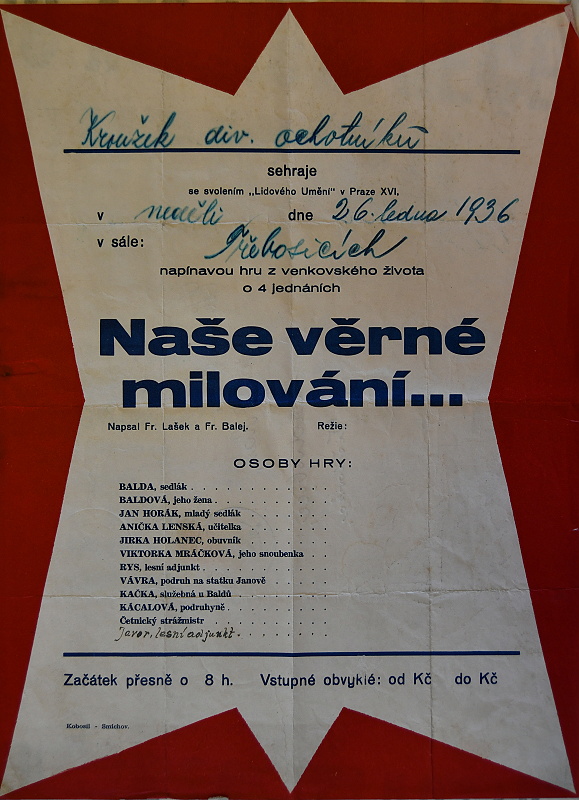 Kroužek div. ochotníků
sehraje
se svolením „Lidového Umění" v Praze XVI,
v neděli dne 26. ledna 1936
v sále: Třebosicích
napínavou hru z venkovského života
o 4 jednáních
Naše věrné
milování...
Napsal Fr. Lašek a Fr. Balej. Režie:
OSOBY HRY:
BALDA, sedlák . . . . . . . . . . . . .
BALDOVÁ, jeho žena . . . . . . . . . . .
JAN HORÁK, mladý sedlák . . . . . . . .
ANIČKA LENSKÁ, učitelka . . . . . . . .
JIRKA HOLANEC, obuvník . . . . . . . .
VIKTORKA MRÁČKOVÁ, jeho snoubenka . .
RYS, lesní adjunkt . . . . . . . . . . . .
VÁVRA, podruh na statku Janově . . . . .
KAČKA, služebná u Baldů . . . . . . . .
KÁCALOVÁ, podruhyně . . . . . . . . . .
Četnický strážmistr . . . . . . . . . .
Javor, lesní adjunkt . . . . . . . . .
Začátek přesně o 8 h. Vstupné obvyklé: od Kč do Kč
Kobosil - Smíchov.